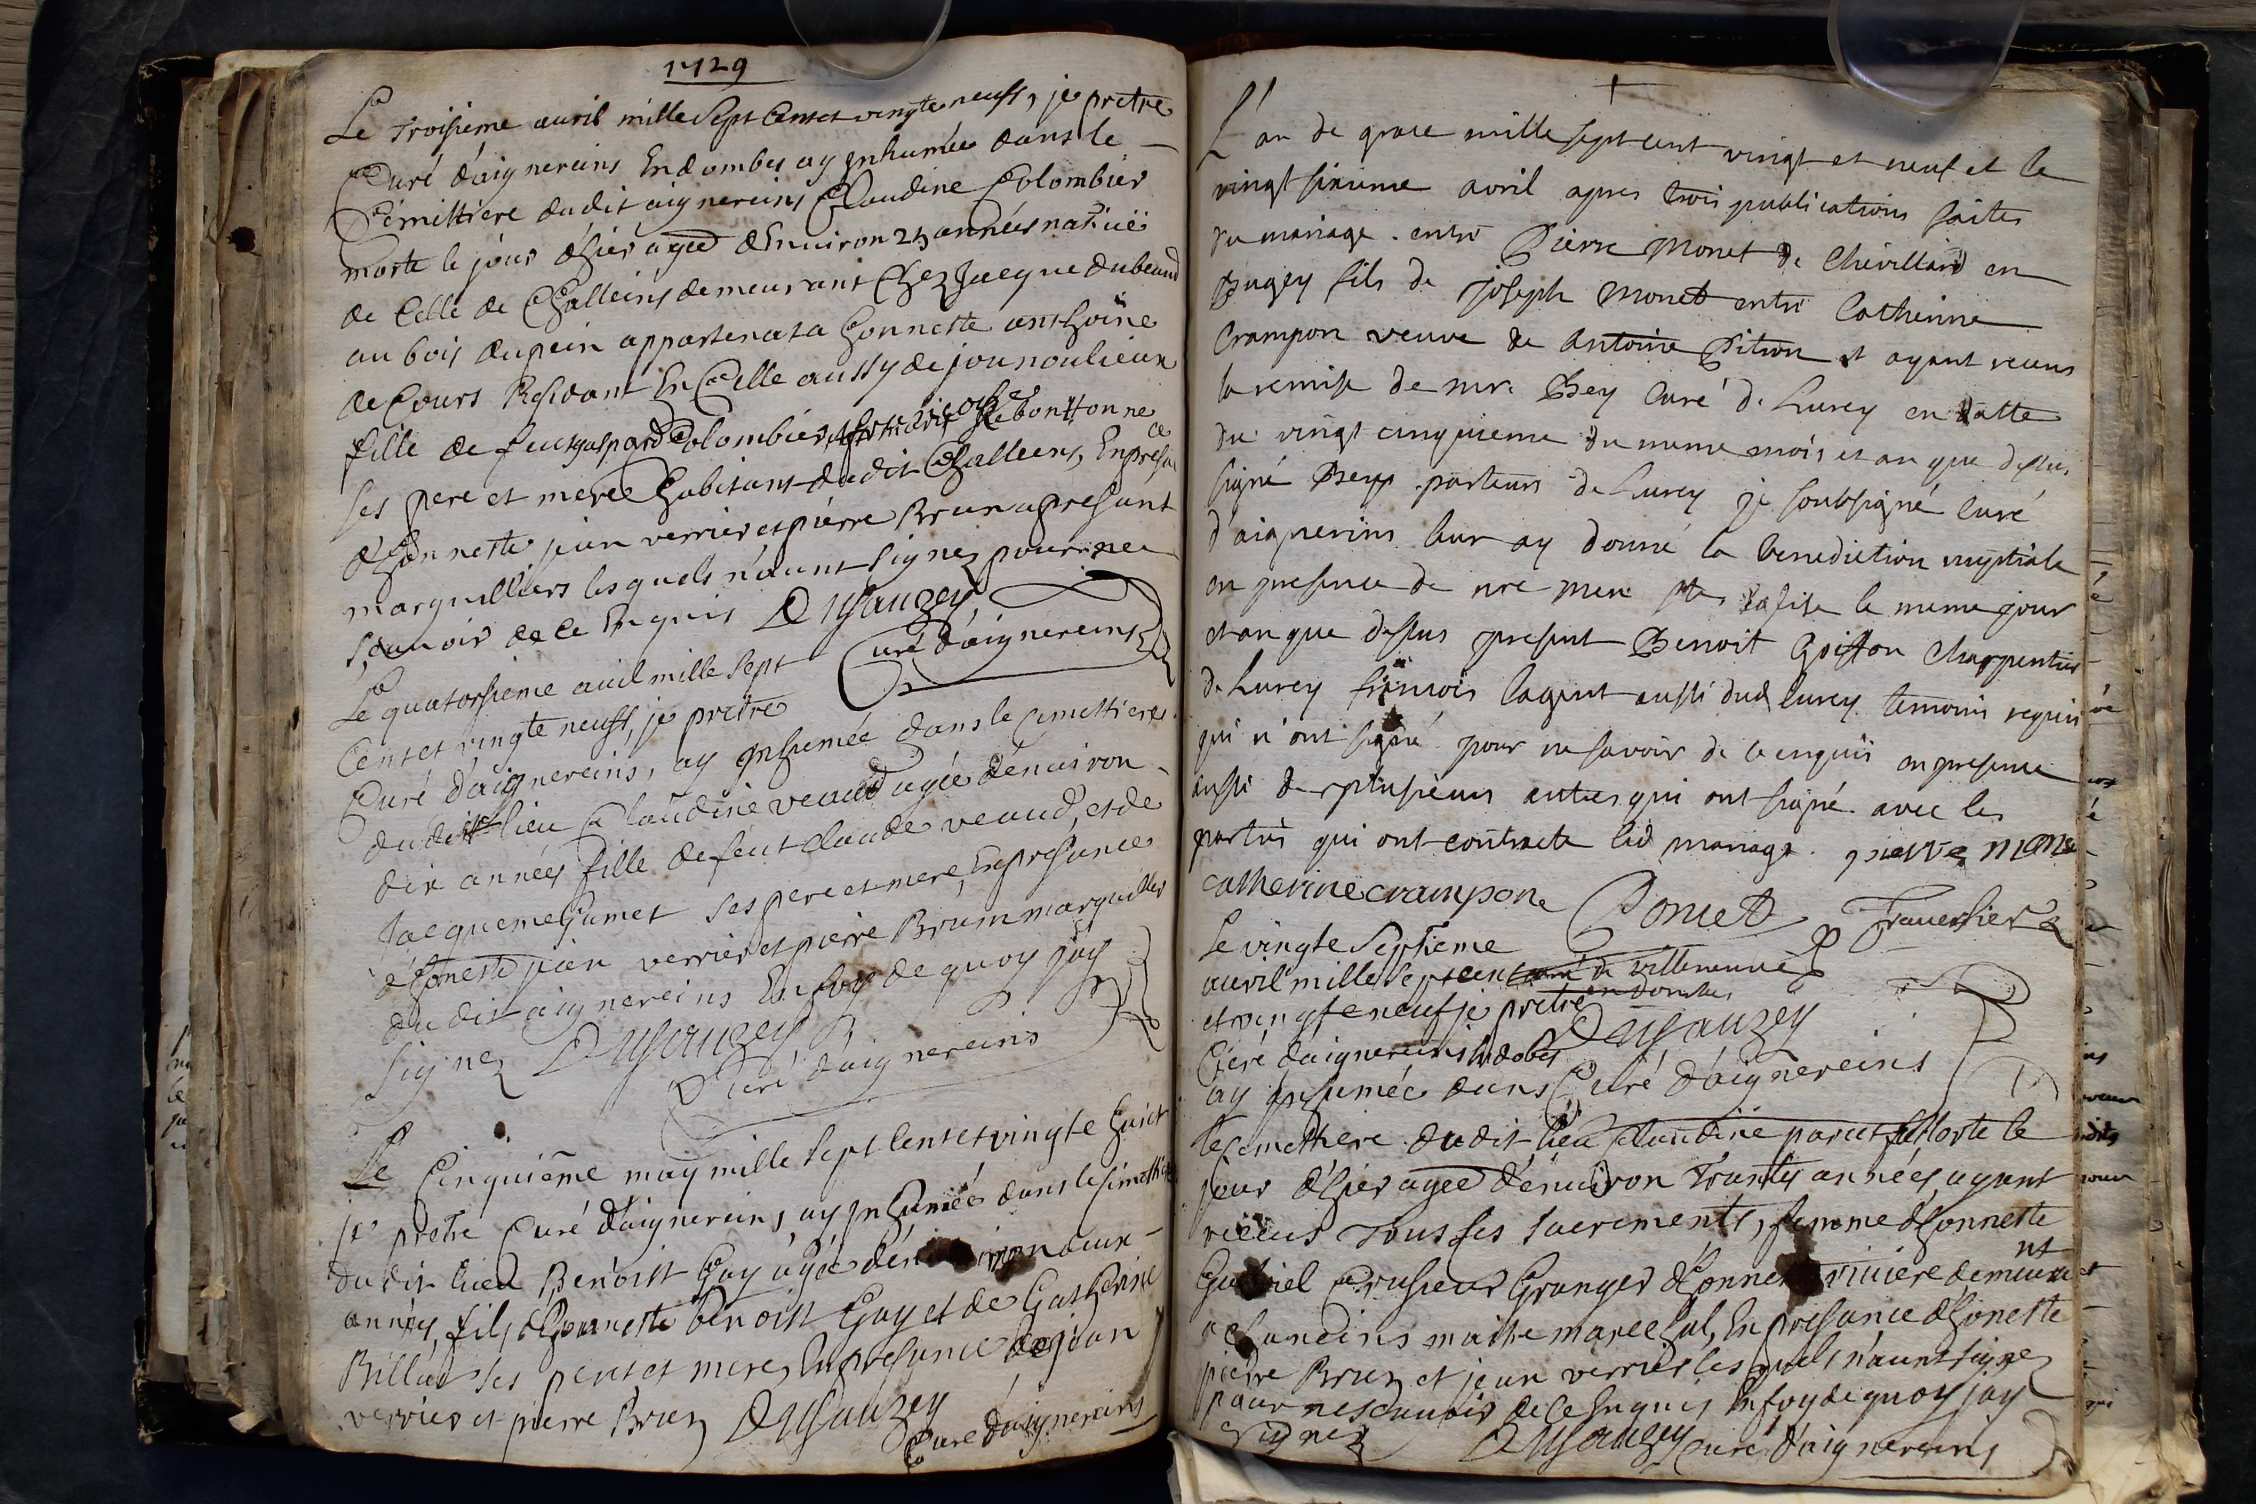 1729
Le troisieme auril mille Sept Cent et vingte neuff, je pretre
Curé d'aignereins En dombes ay Inhumée dans le
Cémittiere du dit aignereins Claudine Colombier
morte le jour d'hier agée d'Enuiron 25 années natiue
de Celle de Challeins demeurant Chez Jacque dubeaud
au bois du pein appartenat a honneste anthoine
de Cours Residant En Celle aussy de
fille de feut gaspard Colombier
ses pere et mere habitant du dit Challeins, En presance
d'honneste jean verrier et pierre Brun a present
marguilliers les quels n'aunt signez pour ne
scauoir de ce Enquis Dusauzey
Curé d'aignereins
Le quatorsieme auil mille sept
Cent et vingte neuff, je pretre
Curé d'aignereins, ay Inhumée dans le semittiere
du dit lieu Claudine veaud agée d'enuiron
dix années fille de feut claude veaud, et de
Jacqueme humet ses pere et mere, En presance
d'honeste jean verrier et pierre Brun marguillier
du dit aignereins En foy de quoy jay
signez Dusauzey
Curé d'aignereins
Le Cinquiême may mille sept Cent et vingte huict
je pretre Curé d'aignereins, ay Inhumée dans le simittiere
du dit lieu Benoist Guy agée d'en iron deux
années, fils d'honneste benoist Guy et de Catherine
Billiad ses pere et mere, En presance de jean
verrier et pierre Brun Dusauzey
Curé d'aignereins
L'an de grace mille sept cent vingt et neuf et le
vingt sixieme avril apres trois publications faites
du mariage entre Pierre Monet de Chevillard en
Bugey fils de Joseph Monet entre Catherine
Crampon veuve de Antoine Pitron et ayant receus
la remise de mr. Bey Curé de Lurcy en datte
du vingt cinquieme du meme mois et an que dessus
signé Bey parteurs de Lurcy je soubsigné curé
d'aignerins leur ay donné la benediction nuptiale
en presence de nre mere ste Eglise le meme jour
et an que dessus present Benoit Goiffon charpentier
de Lurcy françois lagent aussi dud lurcy temoins requis
qui n'ont signé pour ne savoir de ce enquis en presence
aussi de plusieurs autres qui ont signé avec les
partis qui ont contracte led mariage. pierre mone
catherine crampon Poncet Trauerssier
curé de villeneuve
en Dombes
Dusauzey
Curé d'aignereins
Le vingte Septieme
auril mille sept cent
et vingte neuf je pretre
Curé d'aignereins en dobes
ay Inhumée dans
le Cemettiere du dit lieu Claudine parcet morte le
jour d'hier agée d'enuiron trante années ayant
receus tous ses sacrements, femme d'honneste
Gabriel Crusieur Granger d'honne riuiere demeurant
a Chaneins maitre marechal, En presance d'honeste
pierre Brun et jean verrier les quels n'aunt signez
pour ne scauoir de ce Enquis En foy de quoy jay
signez Dusauzey curé d'aignereins